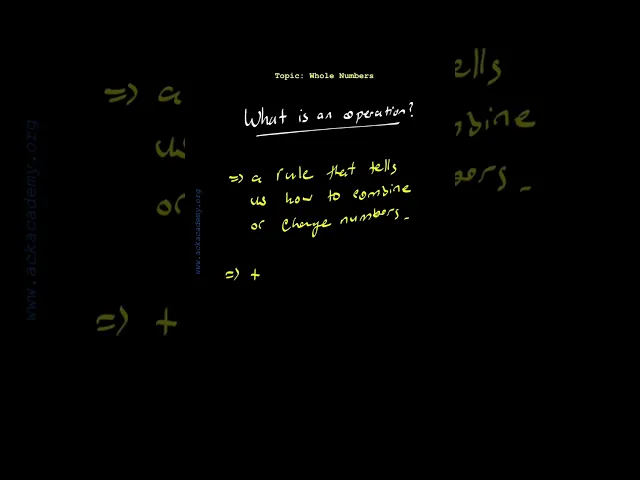 Topic: Whole Numbers
What is an operation?
=> a rule that tells
us how to combine
or change numbers.
=> +
www.ackacademy.org